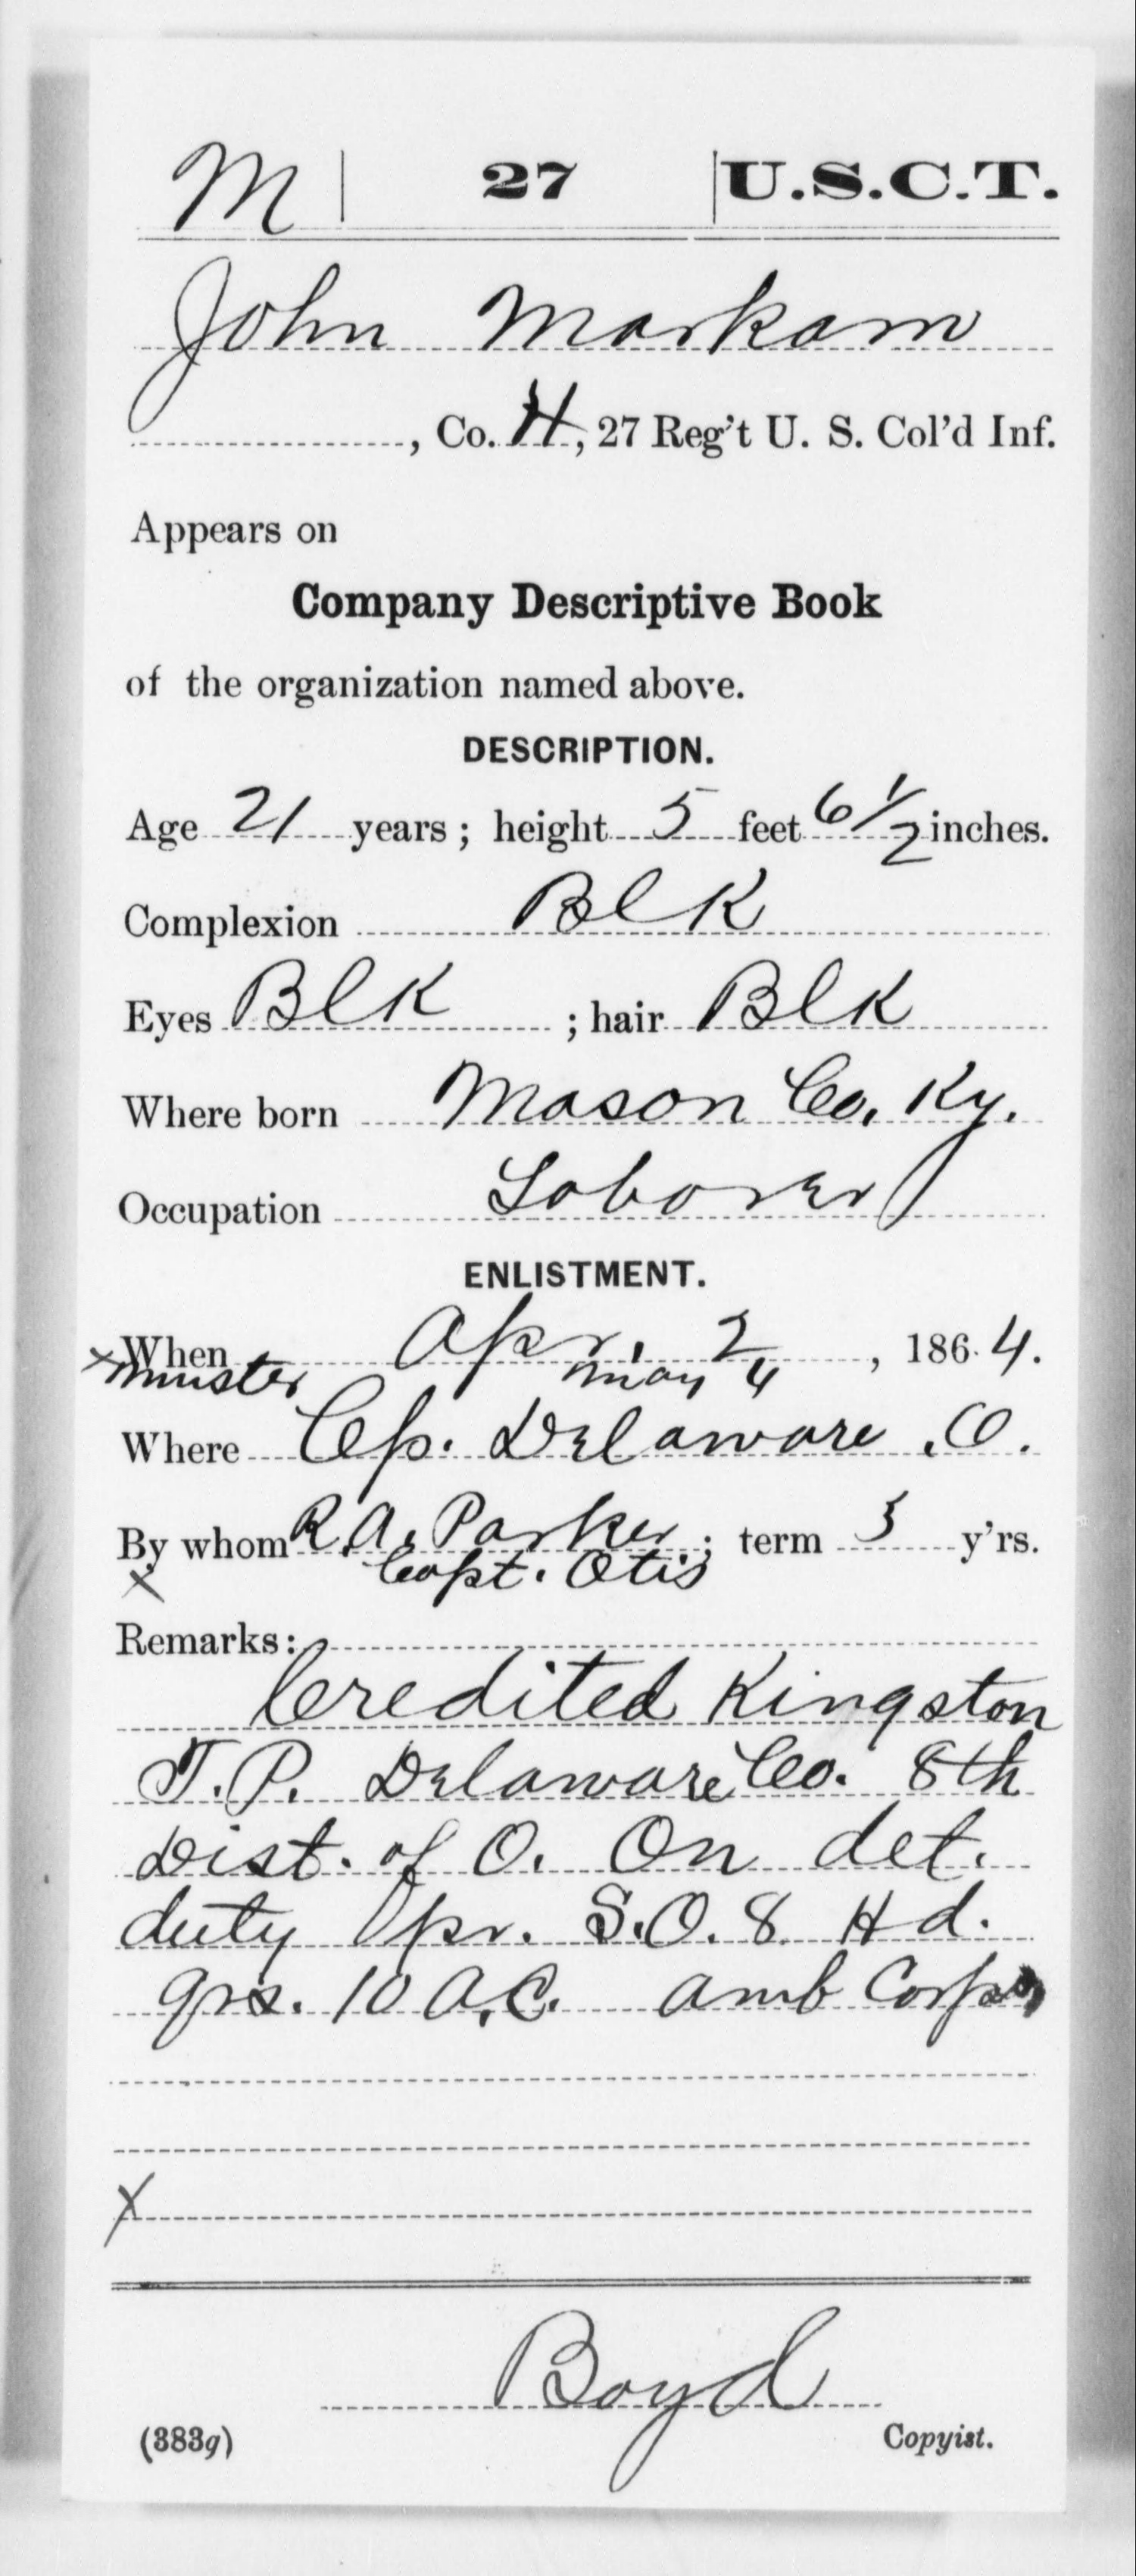 M | 27 | U.S.C.T.
John Markam
, Co. H, 27 Reg't U. S. Col'd Inf.
Appears on
Company Descriptive Book
of the organization named above.
DESCRIPTION.
Age 21 years; height 5 feet 6 1/2 inches.
Complexion Blk
Eyes Blk ; hair Blk
Where born Mason Co. Ky.
Occupation Laborer
ENLISTMENT.
When Apr. 2, 1864.
x muster May 4
Where Cp. Delaware .O.
By whom R.A. Parker ; term 3 y'rs.
x Capt. Otis
Remarks:
Credited Kingston
T.P. Delaware Co. 8th
Dist. of O. On det.
duty pr. S.O. 8 Hd.
qrs. 10 A.C. Amb Corps
x
Boyd
(383g) Copyist.